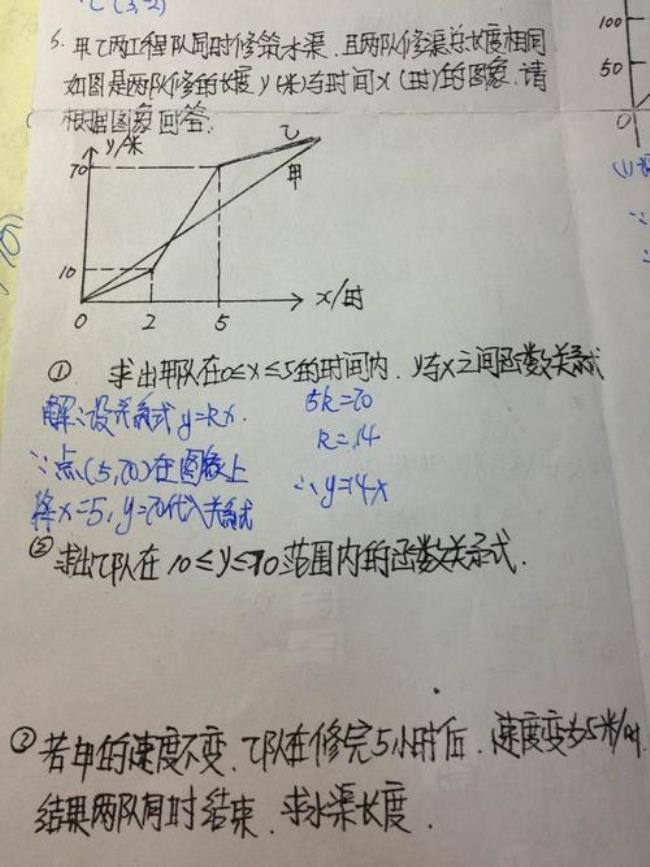 C(3,-2)
5. 甲乙两工程队同时修筑水渠.且两队修渠总长度相同
如图是两队修的长度y(米)与时间x(时)的图象.请
根据图象回答.
y/米
乙
70
甲
10
0
2
5
x/时
① 求出甲队在0≤x≤5的时间内.y与x之间函数关系式
解:设关系式y=kx.
∵点(5,70)在图象上
将x=5,y=70代入关系式
5k=70
k=14
∴y=14x
② 求出乙队在10≤y≤70范围内的函数关系式.
③ 若甲的速度不变.乙队在修完5小时后.速度变为5米/时
结果两队同时结束.求水渠长度.
100
50
0
(1)设
∵
∴